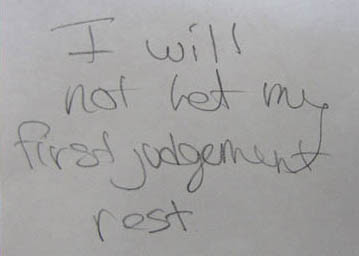 I will
not let my
first judgement
rest